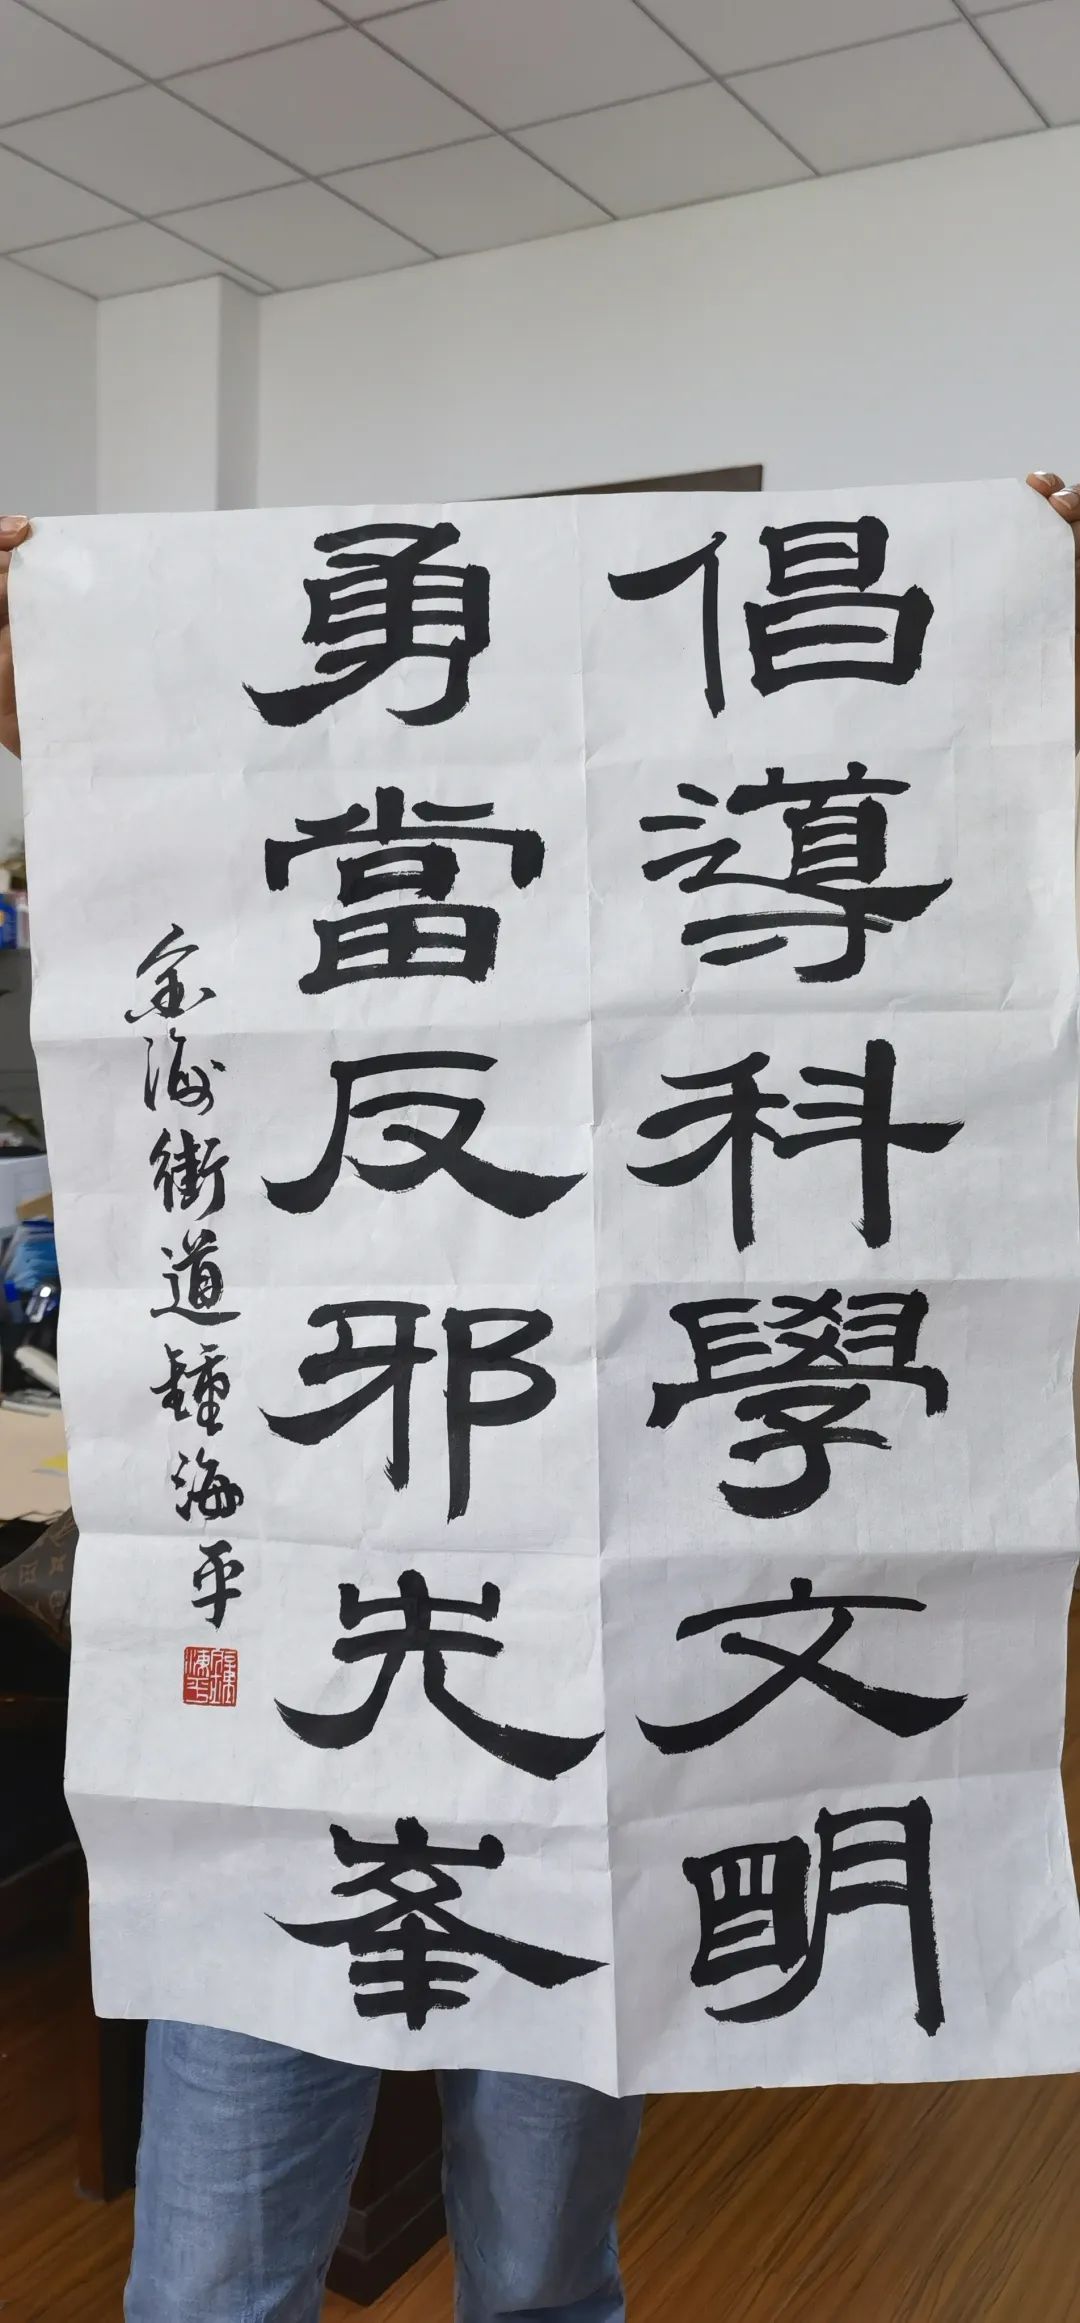 倡導科學文明
勇當反邪先峯
金海街道鍾海平